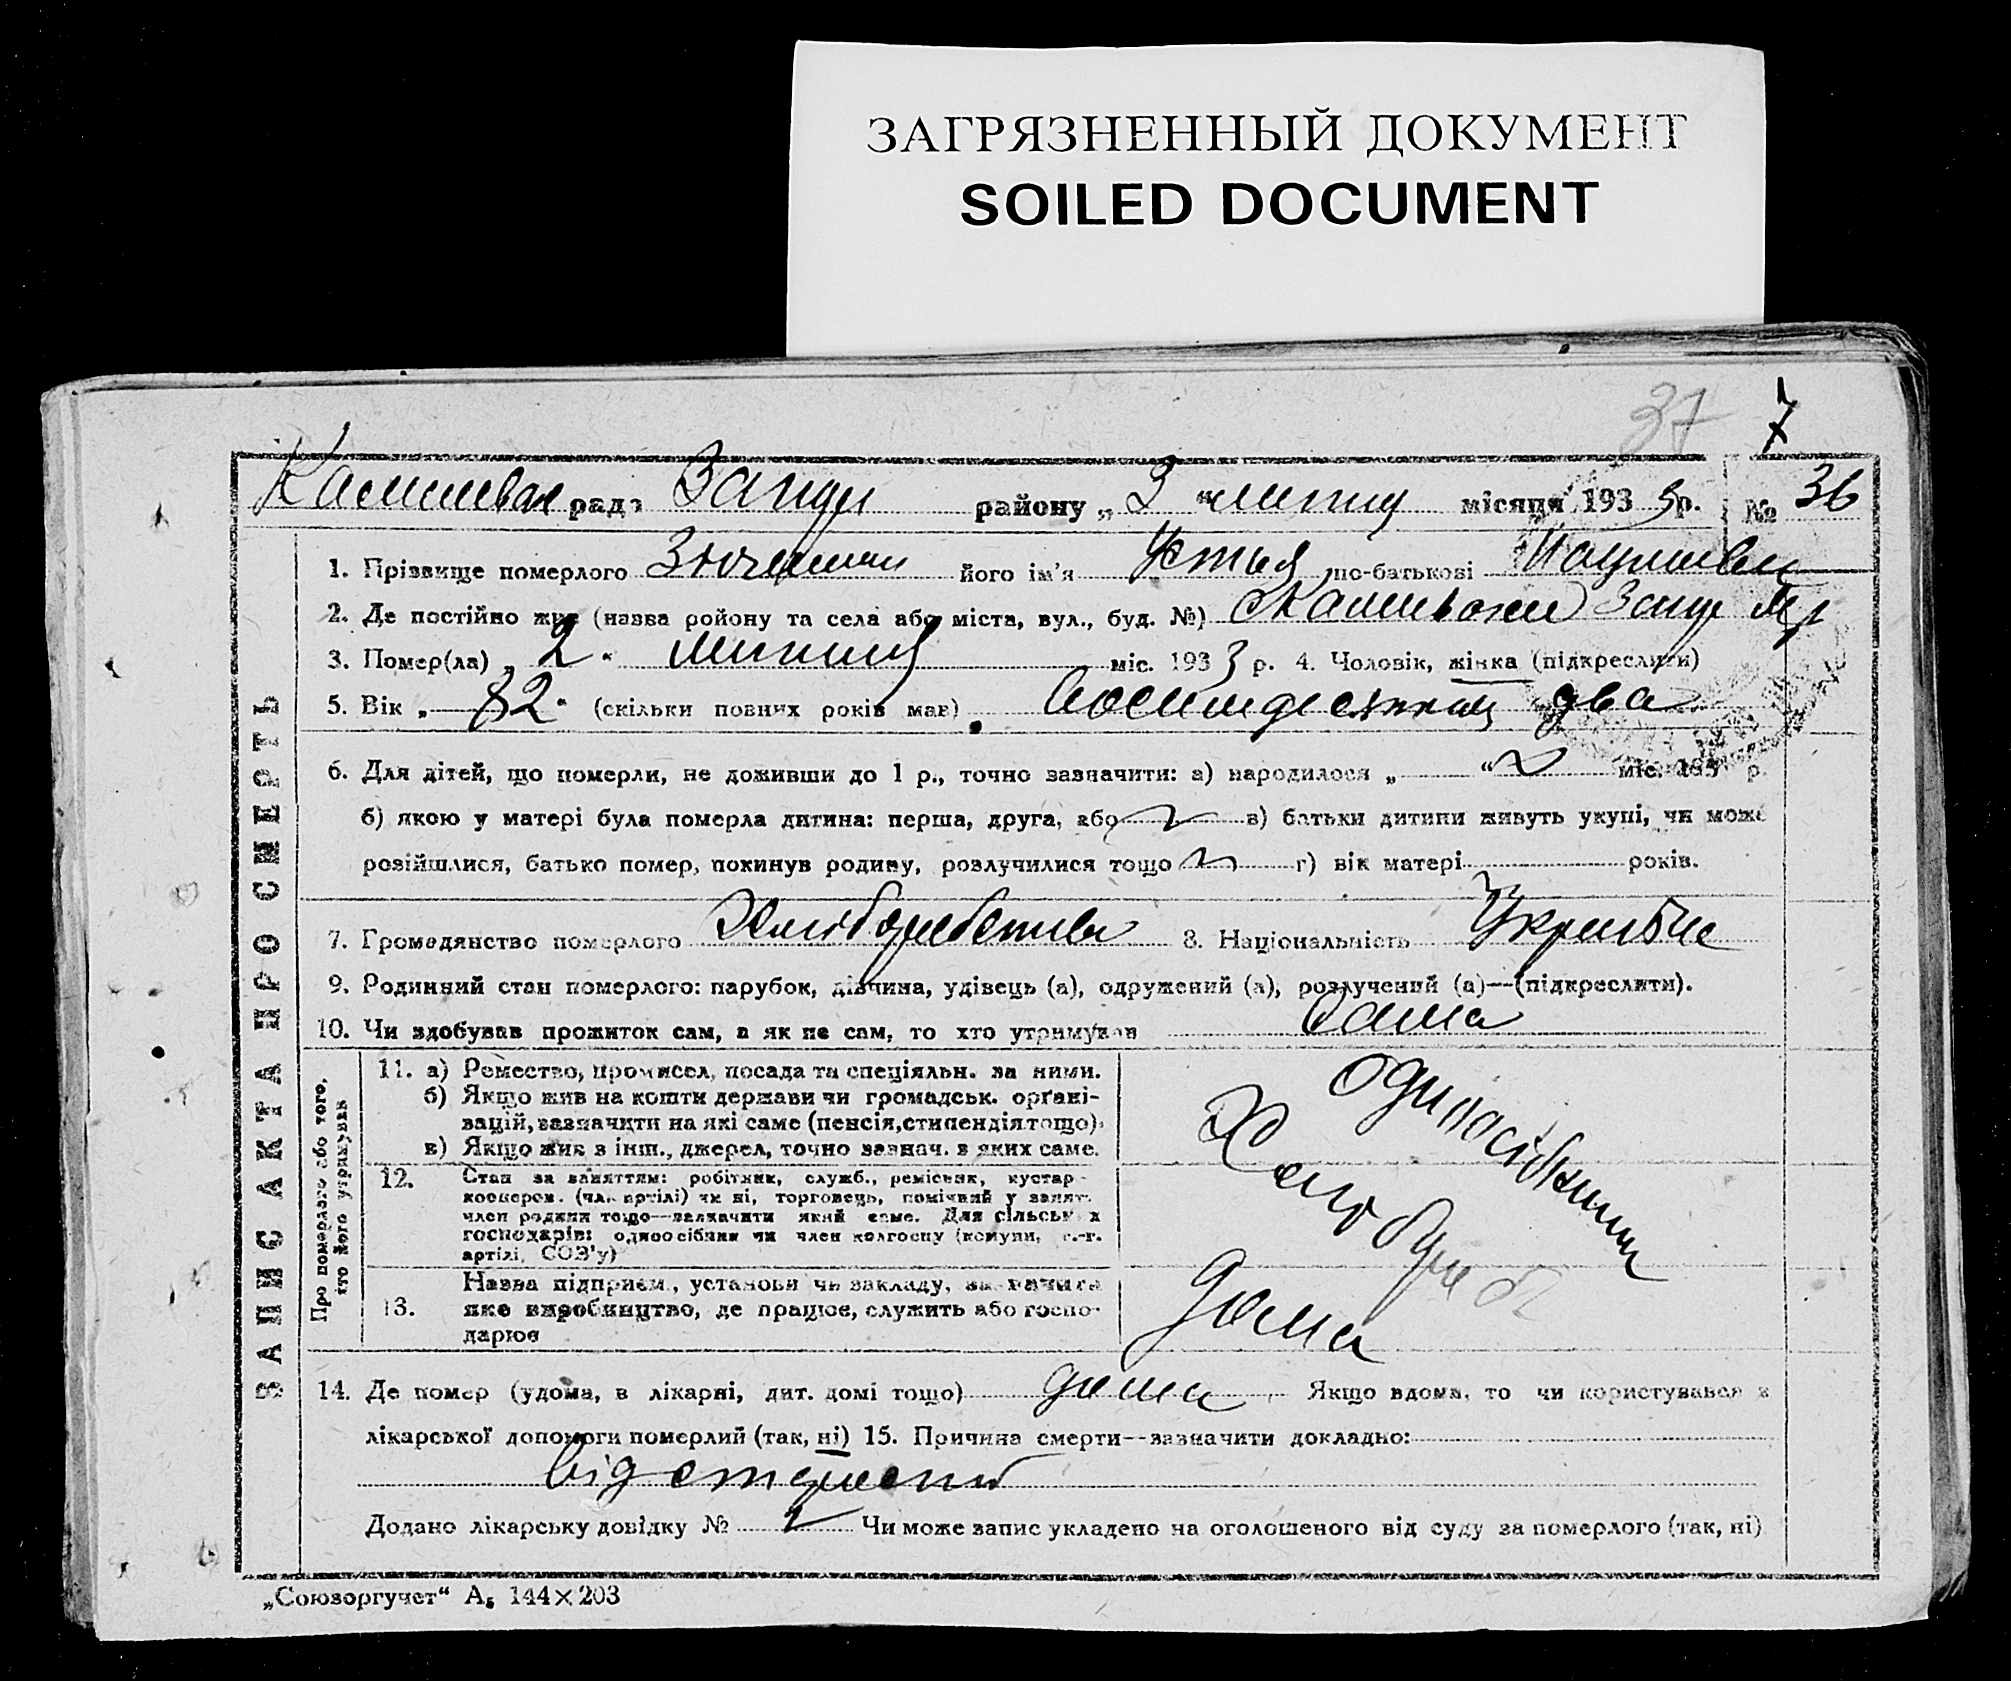 ЗАГРЯЗНЕННЫЙ ДОКУМЕНТ
SOILED DOCUMENT
37 7
рада району „ 3 “ липця місяця 1933 р. № 36
1. Прізвище померлого його ім'я Устья по-батькові
2. Де постійно жив (назва ройону та села або міста, вул., буд. №)
3. Помер(ла) „ 2 “ липця міс. 1933 р. 4. Чоловік, жінка (підкреслити)
5. Вік „ 82 “ (скільки повних років мав) два
6. Для дітей, що померли, не доживши до 1 р., точно зазначити: а) народилося „ “ міс. 193 р.
б) якою у матері була померла дитина: перша, друга, або в) батьки дитини живуть укупі, чи може
розійшлися, батько помер, покинув родину, розлучилися тощо г) вік матері років.
7. Громадянство померлого 8. Національність
9. Родинний стан померлого: парубок, дівчина, удівець (а), одружений (а), розлучений (а)—(підкреслити).
10. Чи здобував прожиток сам, а як не сам, то хто утримував сама
ЗАПИС АКТА ПРО СМЕРТЬ
Про померлого або того, хто його утримував
11. а) Ремество, промисел, посада та спеціяльн. за ними.
б) Якщо жив на кошти держави чи громадськ. орґані-
зацій, зазначити на які саме (пенсія, стипендія тощо).
в) Якщо жив з інш., джерел, точно зазнач. з яких саме.
12. Стан за заняттям: робітник, служб., ремісник, кустар-
кооперов. (чл. артілі) чи ні, торговець, помічний у занят.
член родини тощо—зазначити який саме. Для сільськ х
господарів: одноосібник чи член колгоспу (комуни, с.-г.
артілі, СОЗ'у)
13. Назва підприєм., установи чи закладу, зазначити
яке виробництво, де працює, служить або госпо-
дарює
дома
14. Де помер (удома, в лікарні, дит. домі тощо) дома Якщо вдома, то чи користувався з
лікарської допомоги померлий (так, ні) 15. Причина смерти—зазначити докладно:
від старости
Додано лікарську довідку № Чи може запис укладено на оголошеного від суду за померлого (так, ні)
„Союзоргучет“ А₅ 144×203